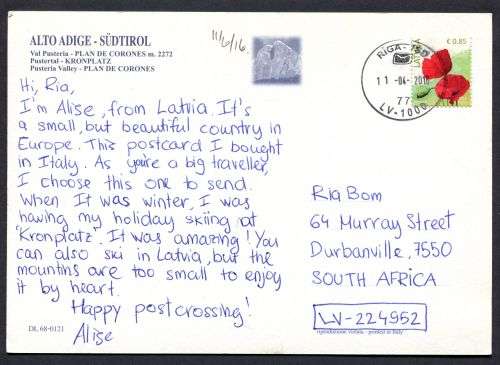 ALTO ADIGE - SÜDTIROL
Val Pusteria - PLAN DE CORONES m. 2272
Pustertal - KRONPLATZ
Pusteria Valley - PLAN DE CORONES
Hi, Ria,
I'm Alise, from Latvia. It's
a small, but beautiful country in
Europe. This postcard I bought
in Italy. As you're a big traveller,
I choose this one to send.
When It was winter, I was
having my holiday skiing at
"Kronplatz". It was amazing! You
can also ski in Latvia, but the
mountins are too small to enjoy
it by heart.
Happy postcrossing!
Alise
DL 68-0121
11/6/16.
RIGA-
11-04-2016
77
LV-1000
€ 0.85
LATVIJA
Ria Bom
64 Murray Street
Durbanville, 7550
SOUTH AFRICA
LV-224952
riproduzione vietata - printed in Italy